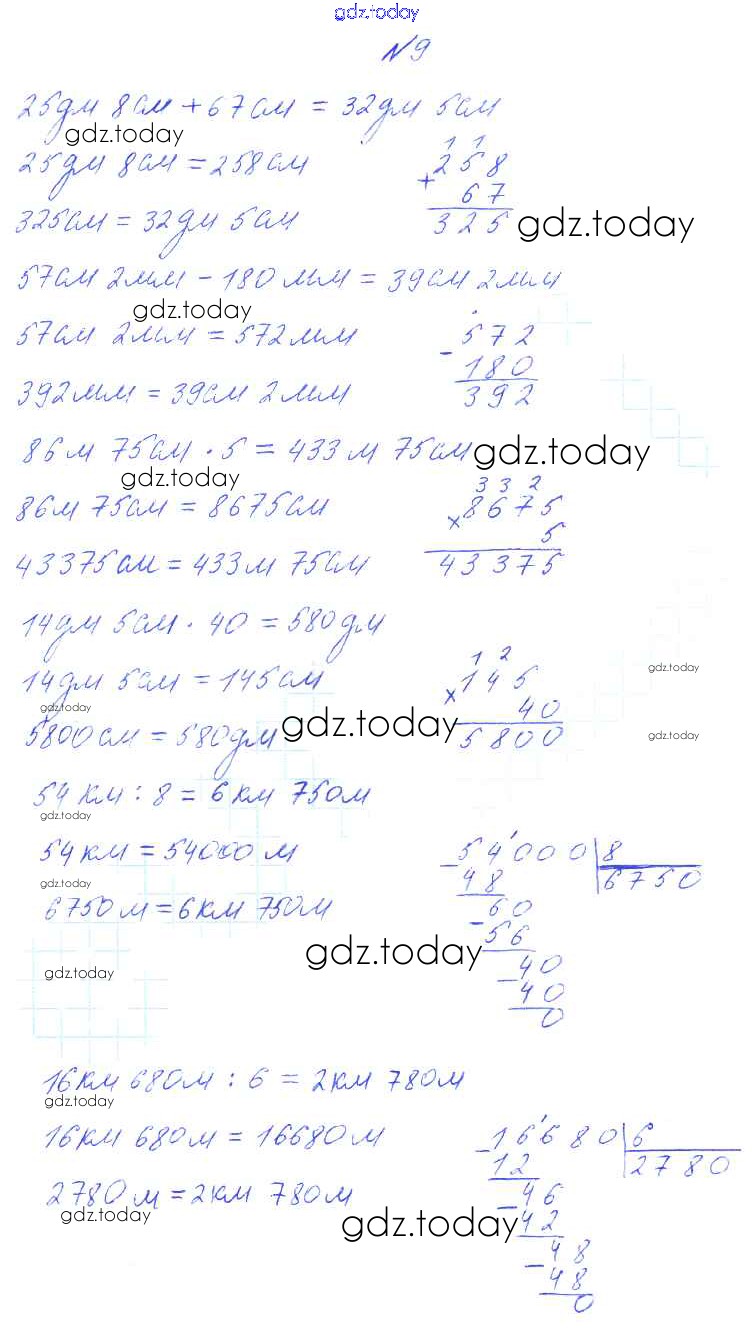 gdz.today
№9
25дм 8см + 67см = 32дм 5см
gdz.today
25дм 8см = 258см
1 1
258
+ 67
325
325см = 32дм 5см
gdz.today
57см 2мм - 180мм = 39см 2мм
gdz.today
57см 2мм = 572мм
- 572
180
392
392мм = 39см 2мм
86м 75см · 5 = 433м 75см
gdz.today
gdz.today
86м 75см = 8675см
3 3 2
× 8675
5
43375
43375см = 433м 75см
14дм 5см · 40 = 580дм
14дм 5см = 145см
1 2
× 145
40
5800
gdz.today
gdz.today
gdz.today
gdz.today
5800см = 580дм
54км : 8 = 6км 750м
gdz.today
54км = 54000м
- 54000 | 8
48 6750
60
- 56
40
- 40
0
gdz.today
6750м = 6км 750м
gdz.today
gdz.today
16км 680м : 6 = 2км 780м
gdz.today
16км 680м = 16680м
- 16680 | 6
12 2780
46
- 42
48
- 48
0
2780м = 2км 780м
gdz.today
gdz.today